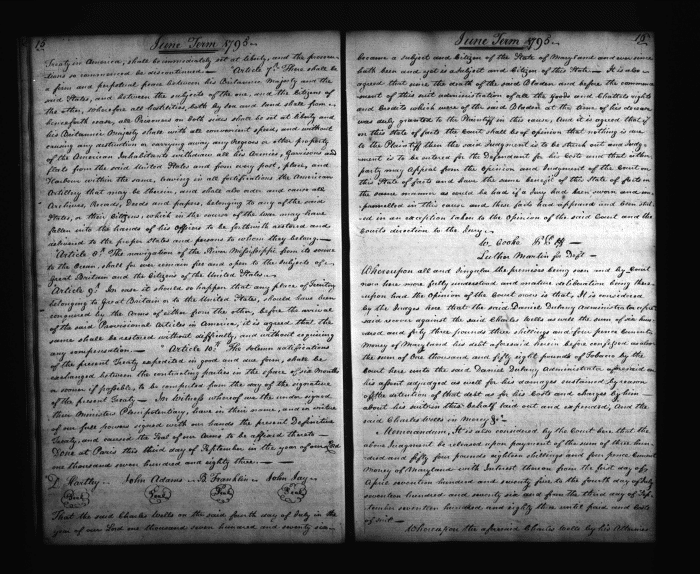 15
June Term 1798
Treaty in America, shall be immediately set at liberty, and the prosecu-
tions so commenced be discontinued— Article 7th. There shall be
a firm and perpetual peace between his Britannic Majesty and the
said States, and between the subjects of the one, and the citizens of
the other, wherefore all hostilities, both by sea and land shall from
henceforth cease, all Prisoners on both sides shall be set at liberty and
his Britannic Majesty shall with all convenient speed, and without
causing any destruction or carrying away any Negroes or other property
of the American Inhabitants withdraw all his Armies, Garrisons and
fleets from the said United States and from every post, place, and
Harbour within the same, leaving in all fortifications the American
Artillery that may be therein, and shall also order and cause all
Archives, Records, Deeds and papers, belonging to any of the said
States, or their Citizens, which in the course of the war may have
fallen into the hands of his Officers to be forthwith restored and
delivered to the proper states and persons to whom they belong—
Article 8th. The navigation of the River Mississippi from its source
to the Ocean, shall for ever remain free and open to the subjects of
Great Britain and the Citizens of the United States—
Article 9th. In case it should so happen that any place or Territory
belonging to Great Britain or to the United States, should have been
conquered by the Arms of either from the other, before the arrival
of the said Provisional Articles in America, it is agreed that the
same shall be restored without difficulty, and without requiring
any compensation— Article 10th. The solemn ratifications
of the present Treaty expedited in good and due form, shall be
exchanged between the contracting parties in the space of six Months
or sooner if possible, to be computed from the day of the signature
of the present Treaty— In Witness whereof we the undersigned
their Ministers Plenipotentiary, have in their name, and in virtue
of our full powers signed with our hands the present Definitive
Treaty, and caused the Seal of our Arms to be affixed thereto—
Done at Paris this third day of September in the year of our Lord
one thousand seven hundred and eighty three—
D Hartley. John Adams— B. Franklin— John Jay—
Seal Seal Seal Seal
That the said Charles Wells on the said fourth day of July in the
year of our Lord one thousand seven hundred and seventy six
June Term 1798
became a subject and Citizen of the State of Maryland and ever since
hath been and yet is a subject and Citizen of this State— It is also
agreed that since the death of the said Bladen and before the commence
ment of this suit administration of all the goods and Chattels rights
and Credits which were of the said Bladen at the time of his decease
was duly granted to the Plaintiff in this cause, And it is agreed that if
on this state of facts the Court shall be of opinion that nothing is due
to the Plaintiff then the said Judgment is to be struck out and Judg-
ment is to be entered for the Defendant for his Costs and that either
party may Appeal from the Opinion and Judgment of the Court on
this State of facts and have the same benefit of this State of facts in
the same manner as could be had if a Jury had been sworn and im-
pannelled in this cause and these facts had appeared and been stat-
ed in an exception taken to the Opinion of the said Court and the
Courts direction to the Jury—
W. Cooke
Luther Martin for Deft—
Whereupon all and singular the premises being seen and by the Court
now here more fully understood and mature deliberation being there-
upon had the Opinion of the Court now is that, It is considered
by the Judges here that the said Daniel Dulany Administrator
said recover against the said Charles Wells as well the sum of six hun-
dred and fifty three pounds three shillings and four pence Current
Money of Maryland his debt aforesaid herein before confessed as also
the sum of One thousand and fifty eight pounds of Tobacco by the
Court here unto the said Daniel Dulany Administrator aforesaid on
his assent adjudged as well for his damages sustained by reason
of the detention of that debt as for his Costs and Charges by him
about his suit in this behalf laid out and expended, And the
said Charles Wells in Mercy &c.
Memorandum, It is also considered by the Court here that the
above Judgment be released upon payment of the sum of three hun-
dred and fifty four pounds eighteen shillings and four pence Current
Money of Maryland with Interest thereon from the first day of
April seventeen hundred and seventy to the fourth day of July
seventeen hundred and seventy six and from the third day of Sep-
tember seventeen hundred and eighty three until paid and Costs
of suit—
Whereupon the aforesaid Charles Wells by his Attornies